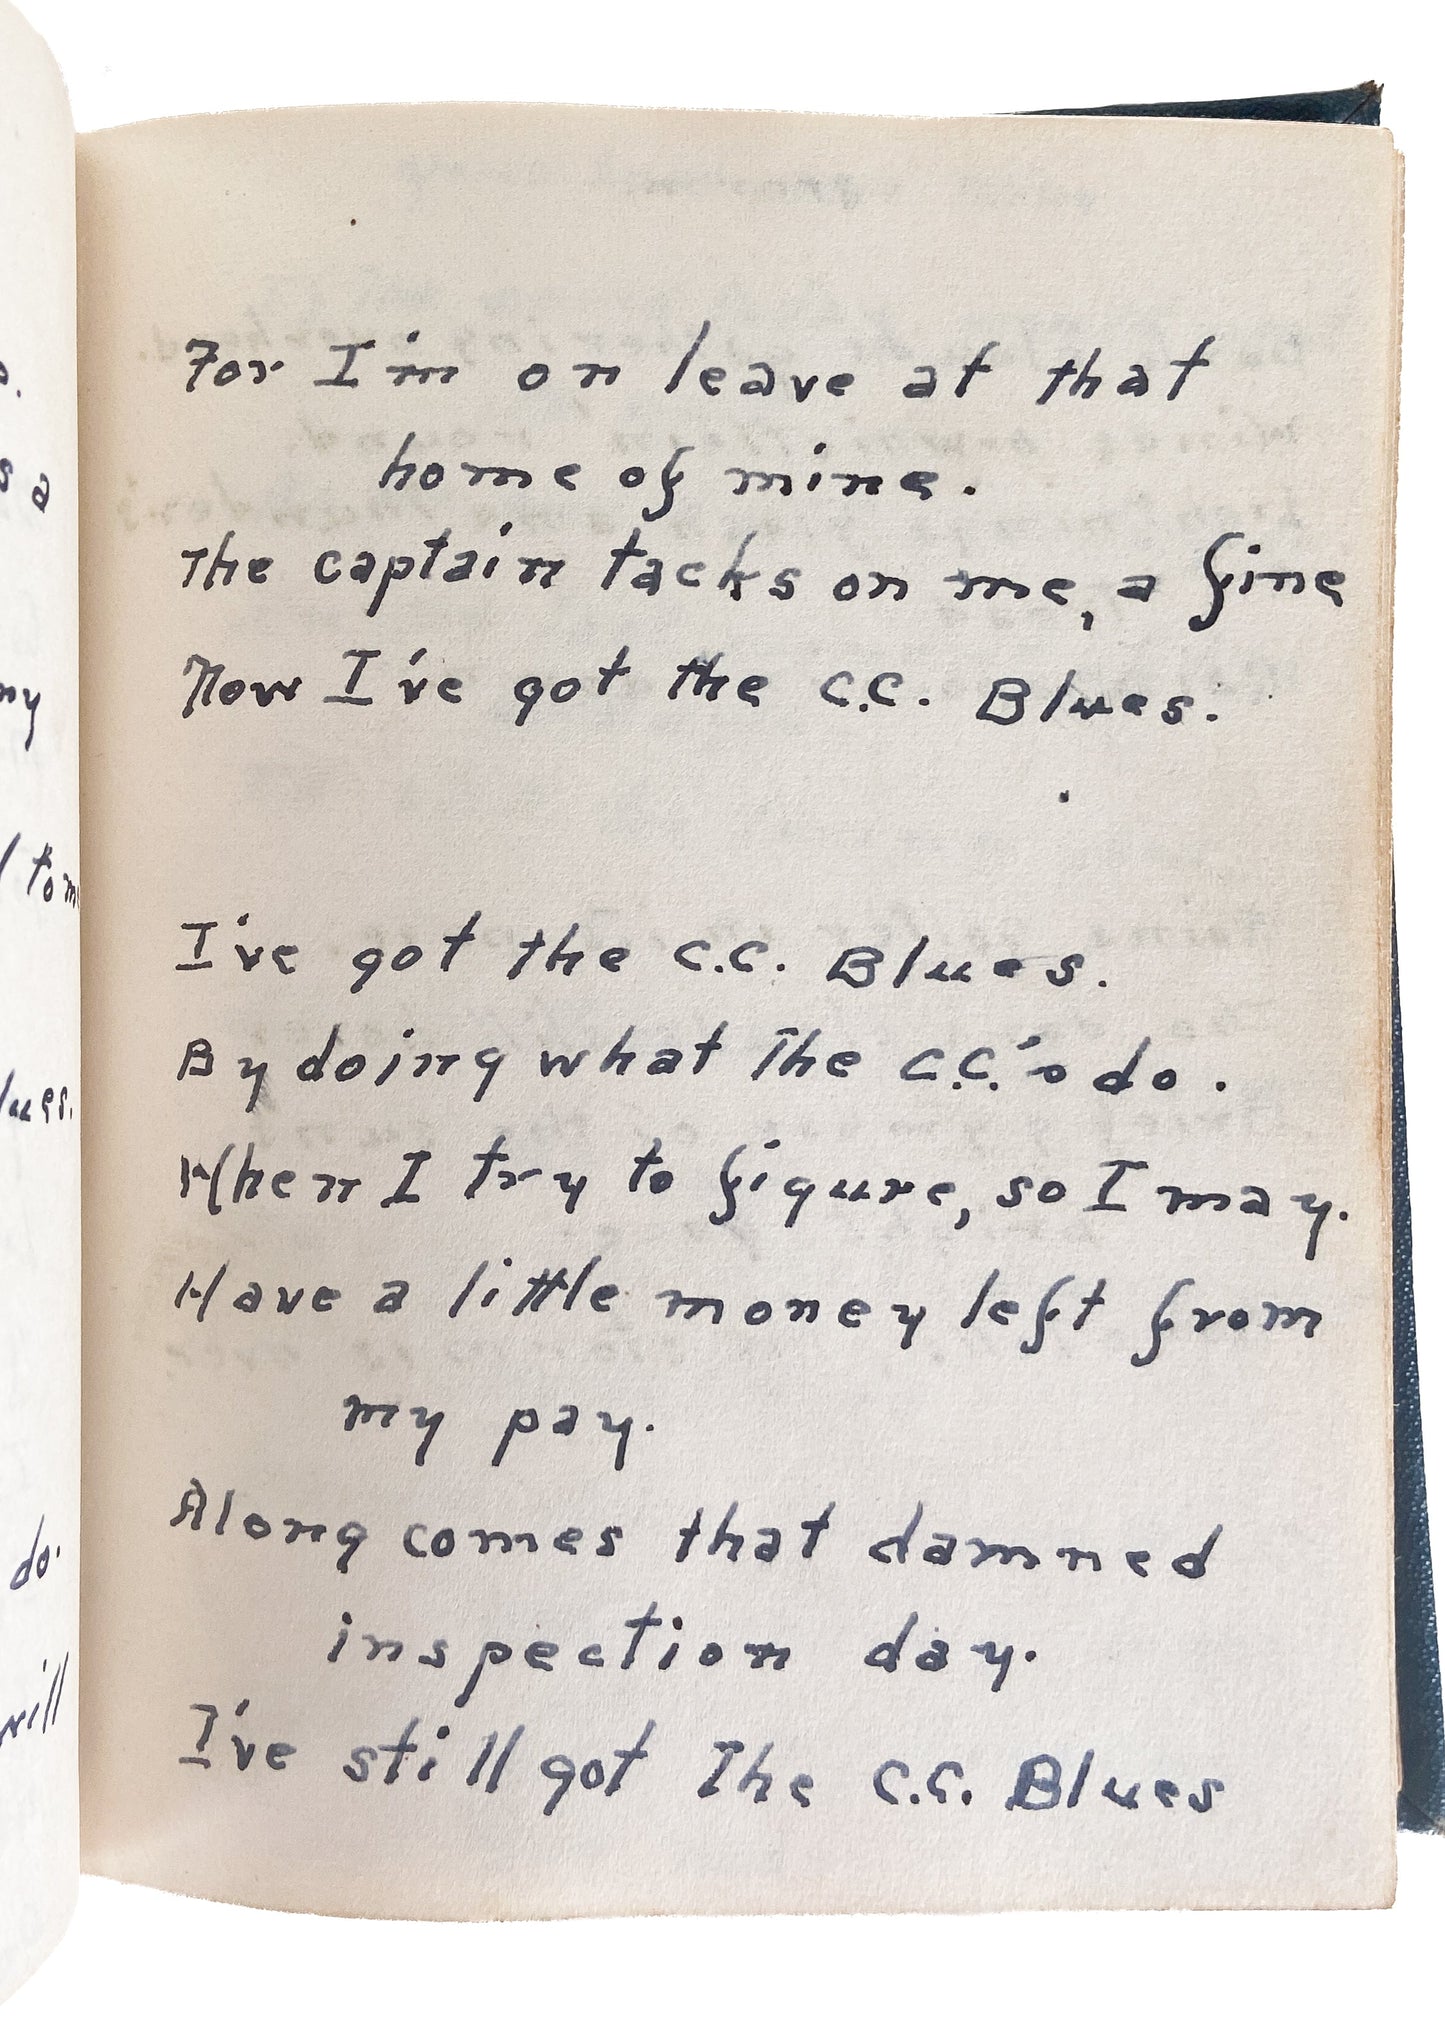 For I'm on leave at that
home of mine.
The captain tacks on me, a fine
Now I've got the C.C. Blues.
I've got the C.C. Blues.
By doing what The C.C.'s do.
When I try to figure, so I may.
Have a little money left from
my pay.
Along comes that damned
inspection day.
I've still got The C.C. Blues
s a
my
do.
will